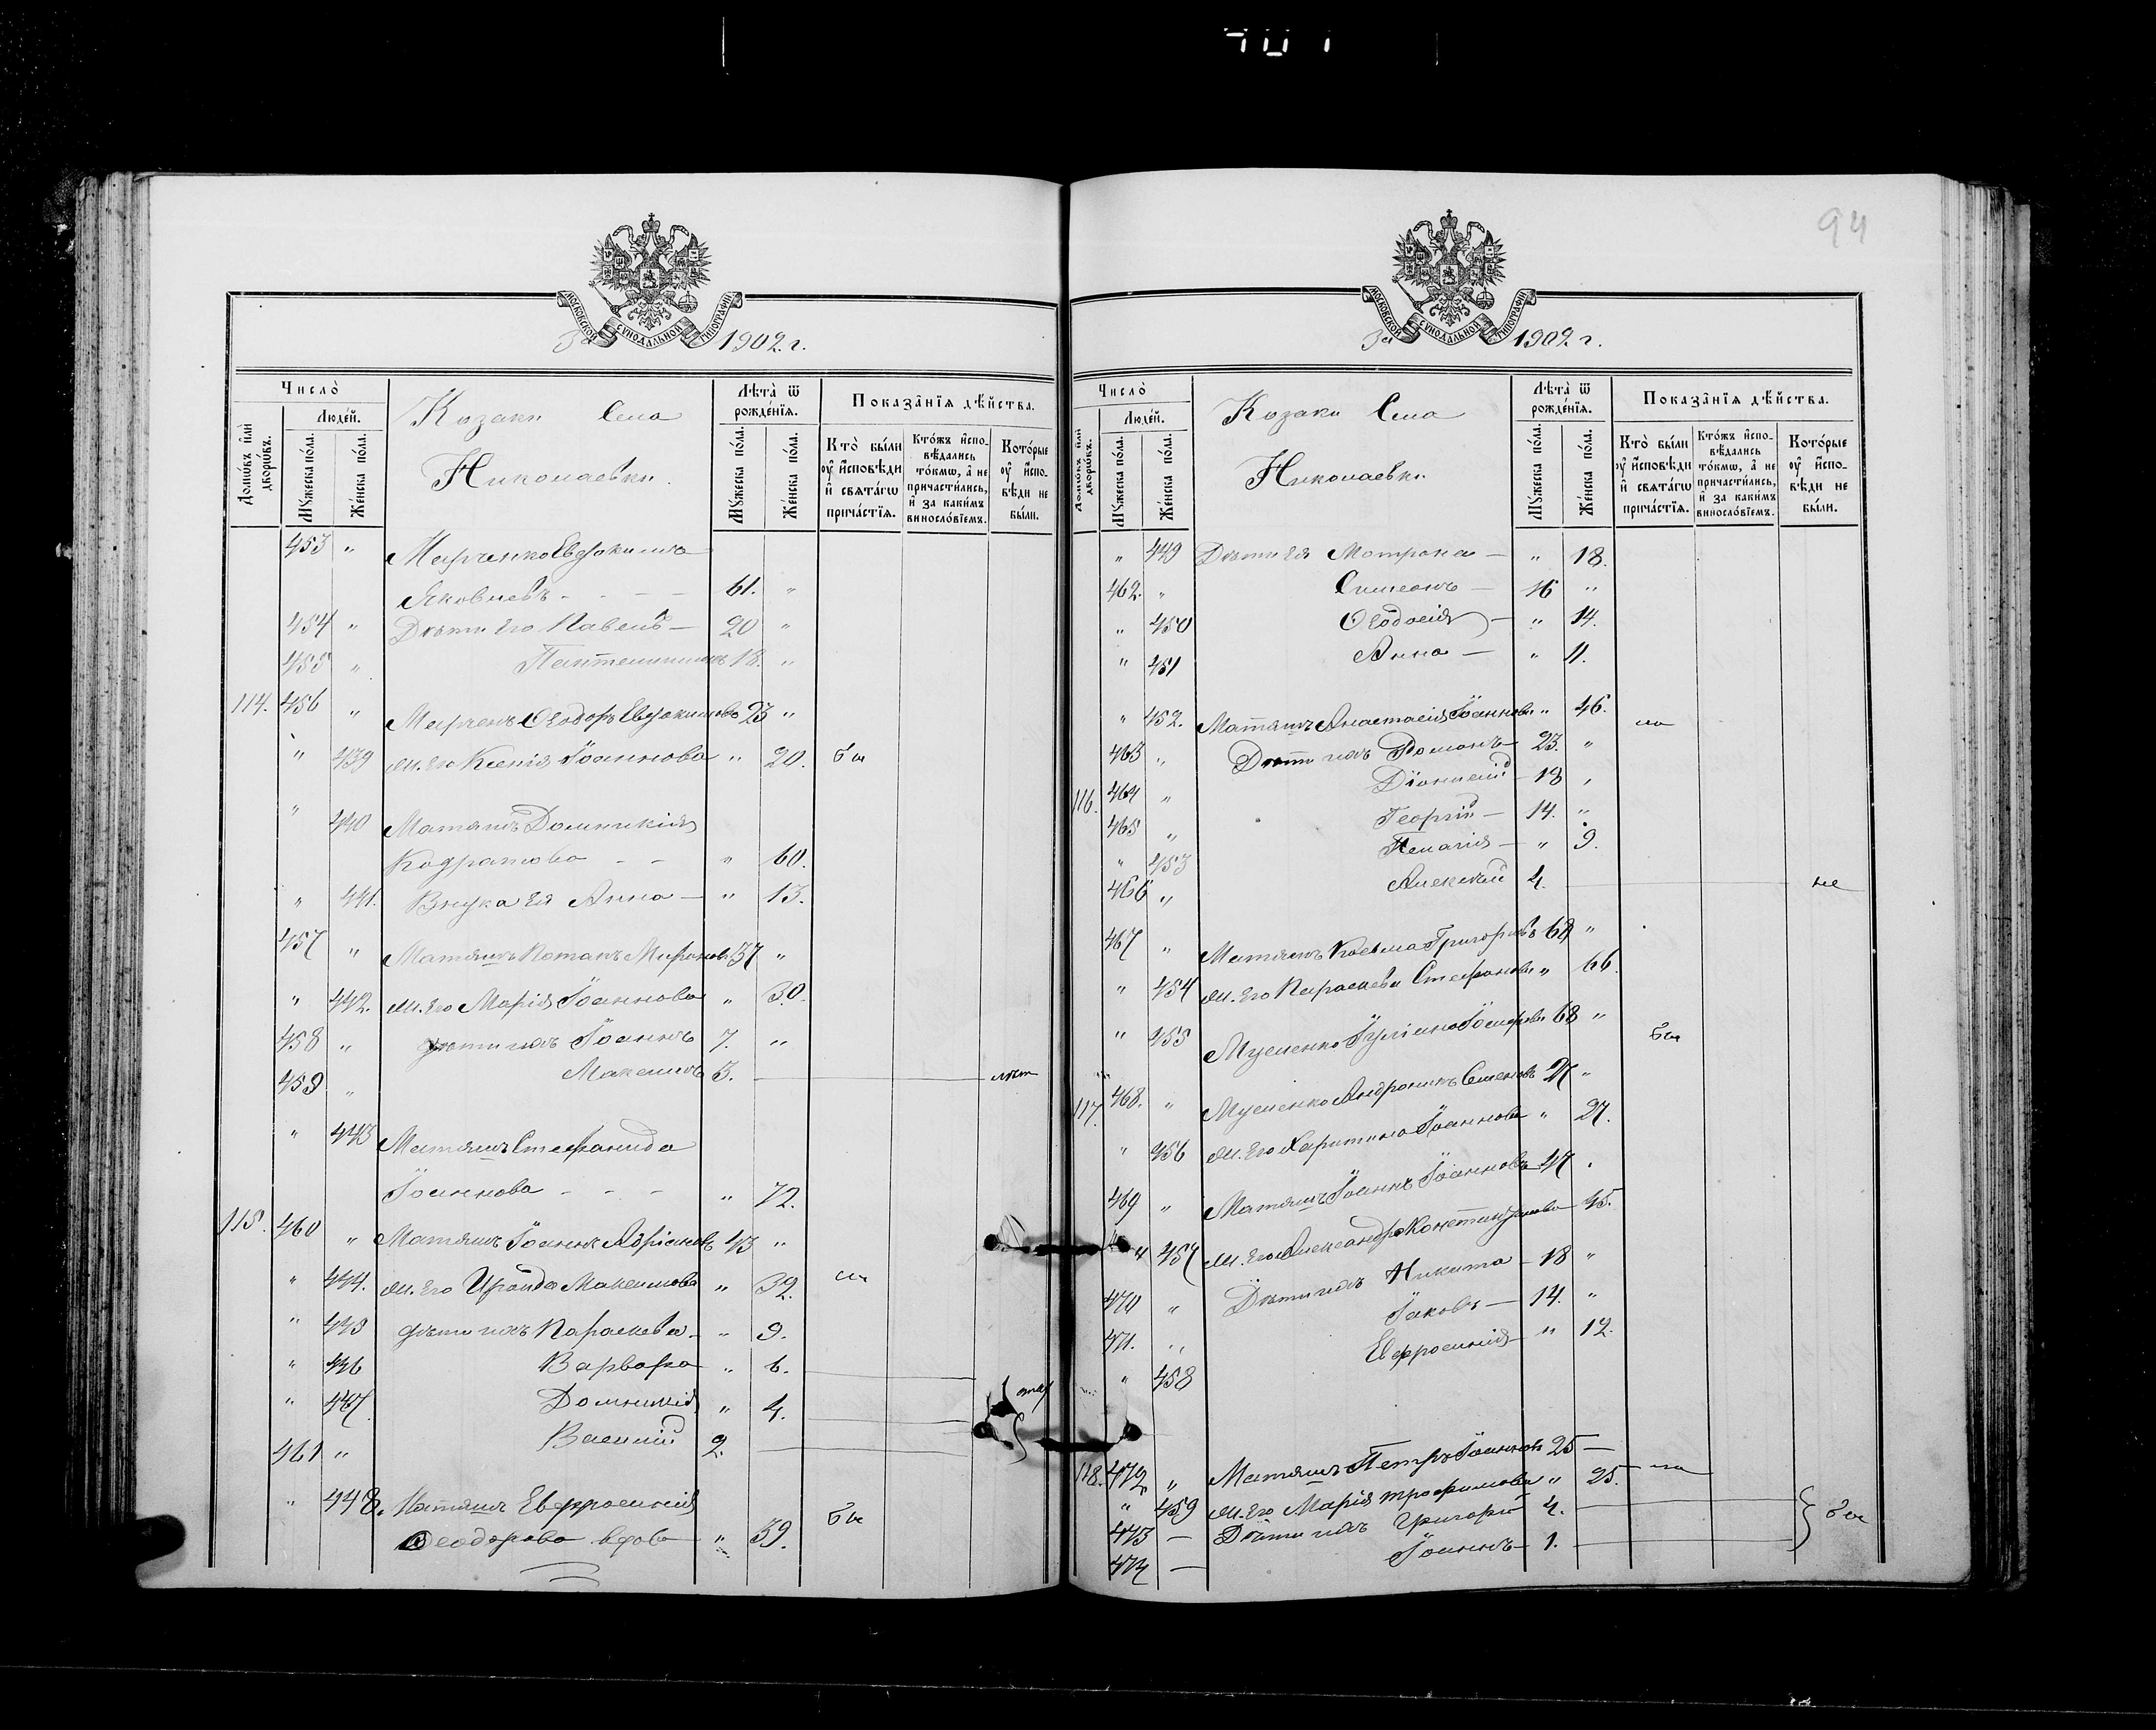 94
МОСКОВСКОЙ СУНОДАЛЬНОЙ ТИПОГРАФІИ
За 1902 г.
Число̀
Домѡ́въ и҆лѝ дворѡ́въ.
Люде́й.
Мꙋ́жеска по́ла.
Же́нска по́ла.
Козаки Села
Николаевки.
Лѣ́та ѿ рожде́нїѧ.
Мꙋ́жеска по́ла.
Же́нска по́ла.
Показа̑нїѧ дѣ́йства.
Кто̀ бы́ли ᲂу҆ и҆сповѣ́ди и҆ свѧта́гѡ прича́стїѧ.
Кто́жъ и҆спо-вѣ́дались то́кмѡ, а҆ не причасти́лись, и҆ за каки́мъ винословїемъ.
Кото́рые ᲂу҆ и҆спо-вѣ́ди не бы́ли.
453 „ Марченко Евдокимъ
Яковлевъ - - - 61. „
454 „ Дѣти его Павелъ — 20 „
455 „ Пантелиимонъ 18. „
114. 456 „ Марченк Ѳеодоръ Евдокимовъ 23 „
„ 439 ж. его Ксенія Іоаннова „ 20. бы
„ 440 Матяшъ Домникія
Кодратова - - „ 60.
„ 441. Внука ея Анна — „ 13.
457 „ Матяшъ Потапъ Мироновъ 37 „
„ 442. ж. его Марія Іоаннова „ 30.
458 „ дѣти ихъ Іоаннъ 7. „
459 „ Максимъ 3. —
„ 443 Матяшъ Стефанида
Іоаннова - - - „ 72.
115. 460 „ Матяшъ Іоаннъ Адріановъ 43 „
„ 444. ж. его Ираида Максимова „ 39. ли
„ 445 дѣти ихъ Параскева - „ 9.
„ 446 Варвара „ 6.
„ 447 Домникія „ 4.
461 „ Василій 2.
„ 448. Матяшъ Евфросинія
Ѳеодорова вдова „ 39. бы
МОСКОВСКОЙ СУНОДАЛЬНОЙ ТИПОГРАФІИ
За 1902 г.
Число̀
Домѡ́въ и҆лѝ дворѡ́въ.
Люде́й.
Мꙋ́жеска по́ла.
Же́нска по́ла.
Козаки Села
Николаевки.
Лѣ́та ѿ рожде́нїѧ.
Мꙋ́жеска по́ла.
Же́нска по́ла.
Показа̑нїѧ дѣ́йства.
Кто̀ бы́ли ᲂу҆ и҆сповѣ́ди и҆ свѧта́гѡ прича́стїѧ.
Кто́жъ и҆спо-вѣ́дались то́кмѡ, а҆ не причасти́лись, и҆ за каки́мъ винословїемъ.
Кото́рые ᲂу҆ и҆спо-вѣ́ди не бы́ли.
„ 449 Дѣти ея Мотрона — „ 18.
462. „ Симеонъ — 16 „
„ 450 Ѳеодосія — „ 14.
„ 451 Анна — „ 11.
„ 452. Матяшъ Анастасія Іоаннова „ 46. ли
463 „ Дѣти ихъ Романъ — 23. „
116. 464 „ Діонисій — 18 „
465 „ Георгій — 14. „
„ 453 Пелагія — „ 9.
466 „ Алексѣй 4. не
467 „ Матяшъ Косьма Григорьевъ 68 „
„ 454 ж. его Параскева Стефанова „ 66.
„ 455 Мусіенко Іуліана Іосифова 68 „ бы
117. 468. „ Мусіенко Андроникъ Семеновъ 27 „
„ 456 ж. его Харитина Іоаннова „ 27.
469 „ Матяшъ Іоаннъ Іоанновъ 47 „
„ 457 ж. его Александра Константинова — 45.
470 „ Дѣти ихъ Никита — 18 „
471. „ Іаковъ — 14. „
„ 458 Евфросинія — „ 12.
118. 472 „ Матяшъ Петръ Іоанновъ 25 —
„ 459 ж. его Марія Трофимова „ 25. — ли
473 — Дѣти ихъ Григорій 4. бы
474 — Іоаннъ — 1.